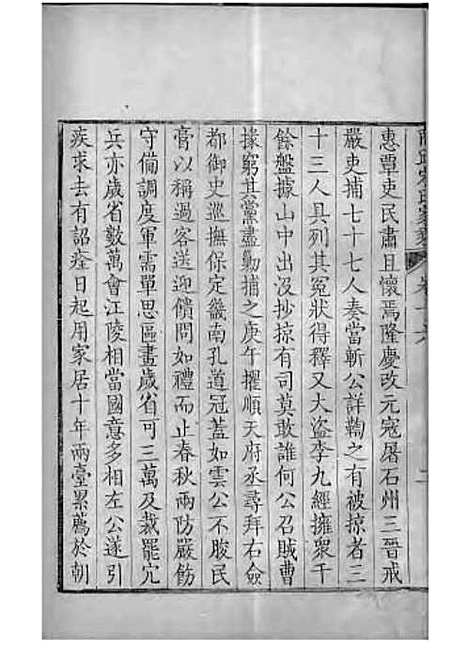 惠覃吏民肅且懷焉隆慶改元寇屠石州三晉戒
嚴吏捕七十七人奏當斬公詳鞫之有被掠者三
十三人具列其冤狀得釋又大盜李九經擁衆千
餘盤據山中出沒抄掠有司莫敢誰何公召賊曹
掾窮其黨盡勦捕之庚午擢順天府丞尋拜右僉
都御史巡撫保定畿南孔道冠蓋如雲公不朘民
膏以稱過客送迎儐問如禮而止春秋兩防嚴飭
守備調度軍需單思區畫歲省可三萬及裁罷冗
兵亦歲省數萬會江陵相當國意多相左公遂引
疾求去有詔痊日起用家居十年兩臺累薦於朝